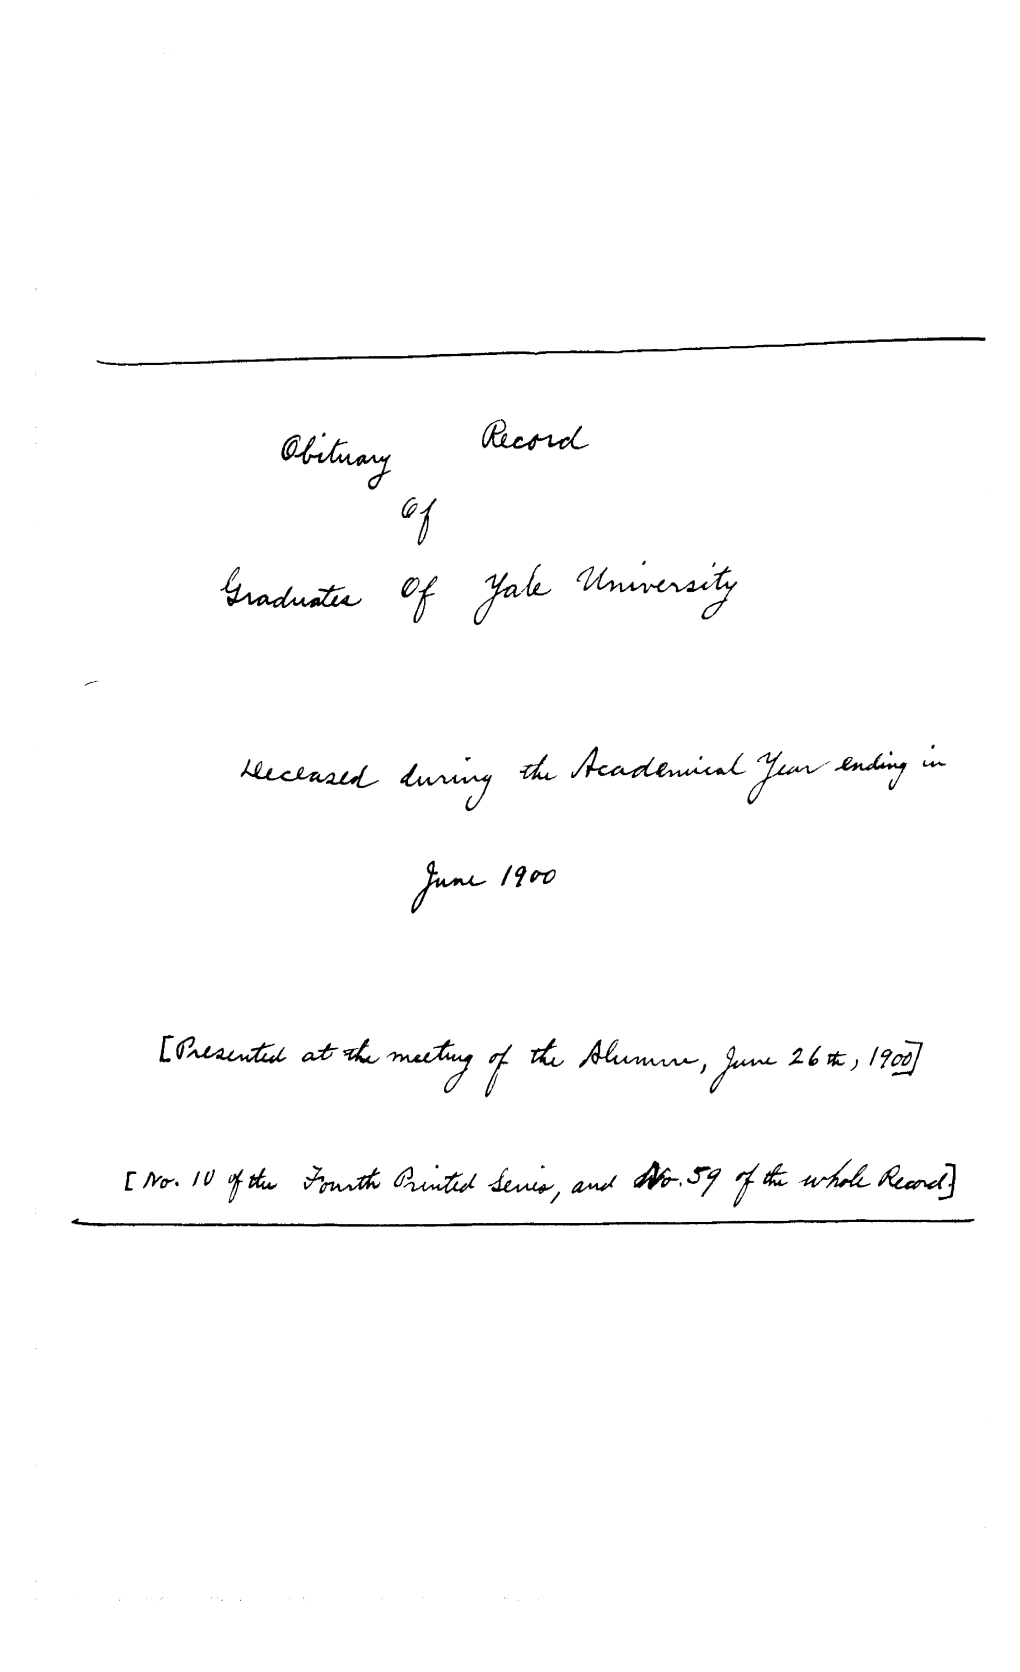 Obituary Record
Of
Graduates Of Yale University
Deceased during the Academical Year ending in
June 1900
[Presented at the meeting of the Alumni, June 26th, 1900]
[No. 10 of the Fourth Printed Series, and No. 59 of the whole Record]